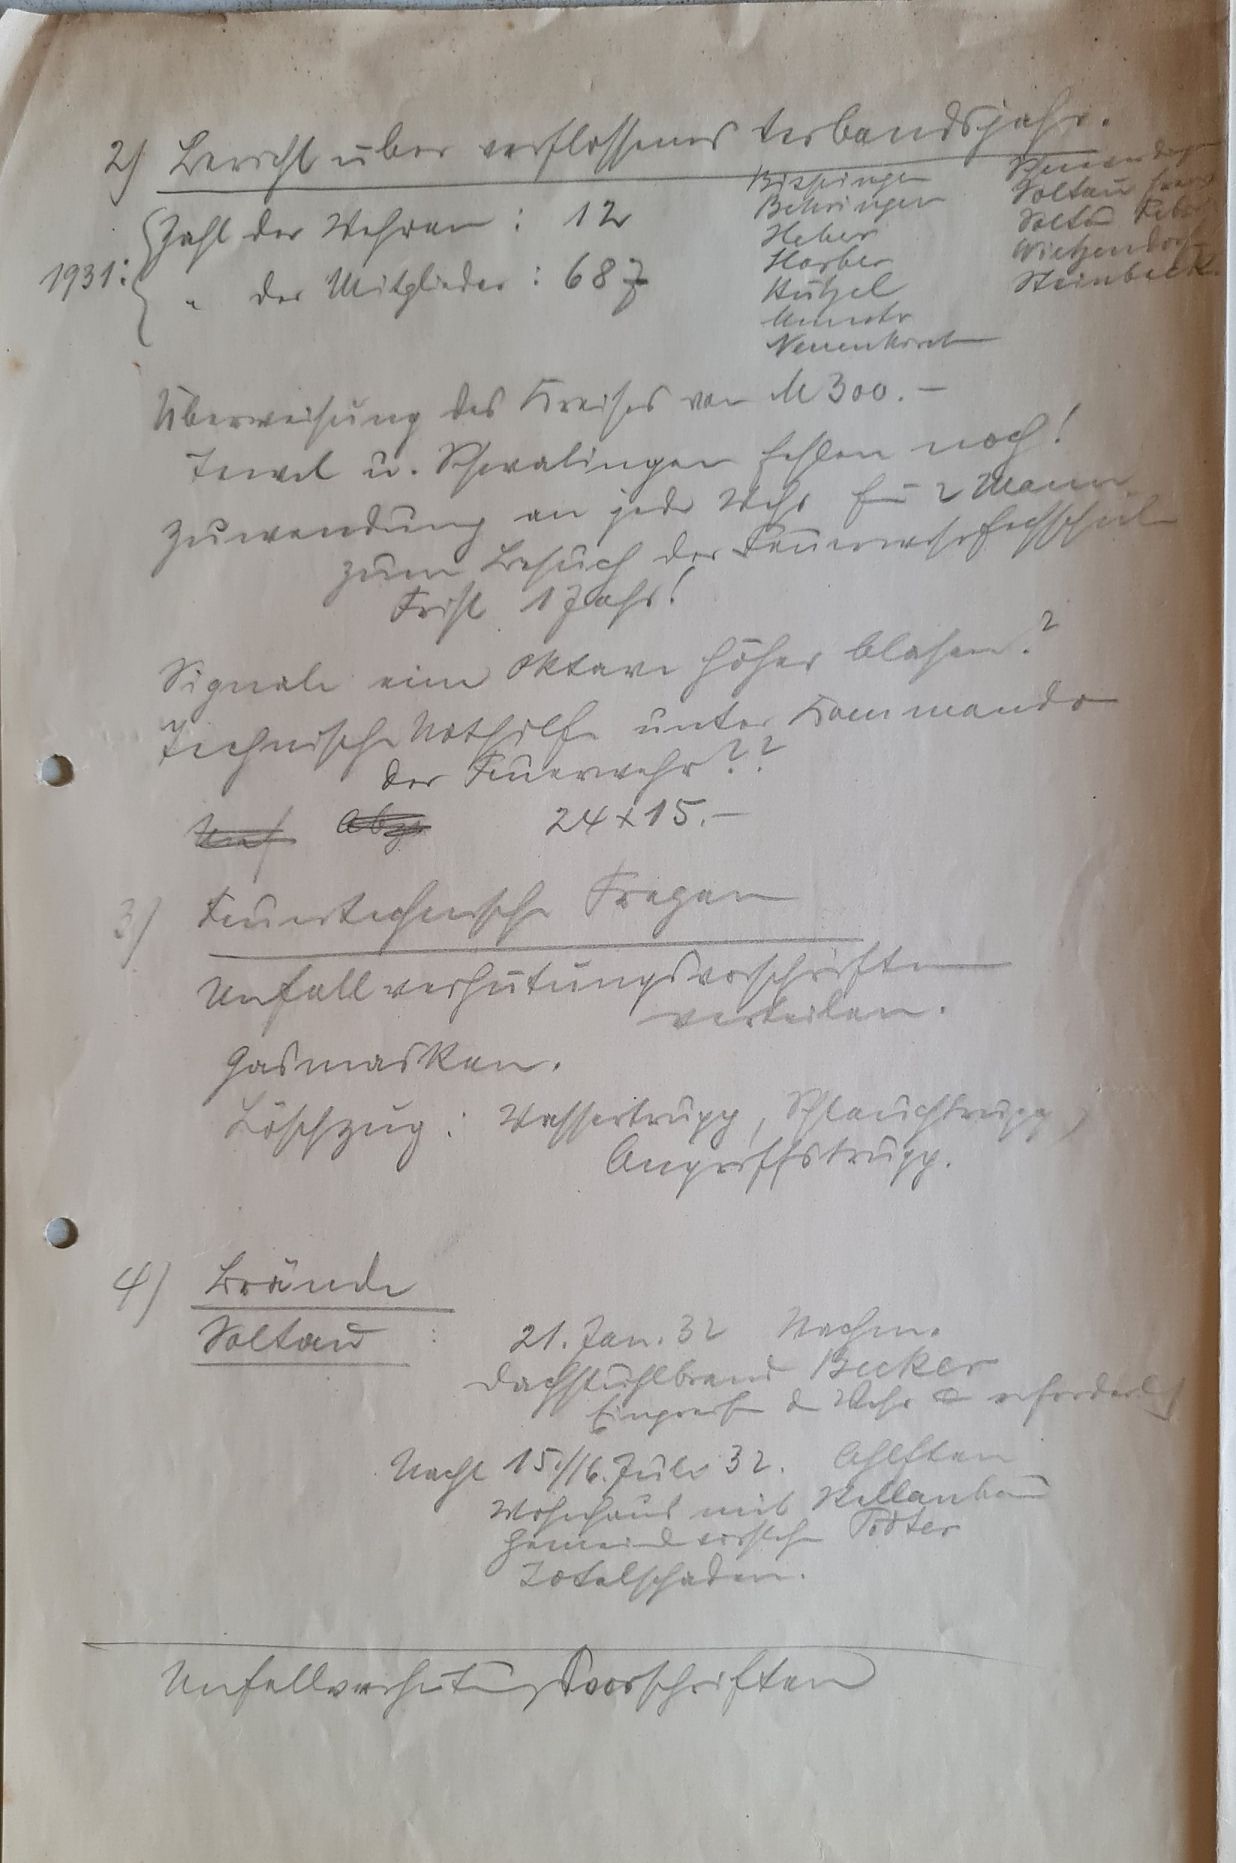 2) Bericht über verflossenes Verbandsjahr.
1931: Zahl der Wehren : 12
" der Mitglieder : 687
Bispingen
Behringen
Heber
Harber
Hützel
Munster
Neuenkirch
Schneverdingen
Soltau
Soltau
Wietzendorf
Steinbeck
Überweisung des Kreises von M 300.–
Tewel u. Schwalingen fehlen noch!
Zuwendung an jede Wehr für 2 Mann
zum Besuch der Feuerwehrfachschule
Frist 1 Jahr!
Signale eine Oktave höher blasen?
Technische Nothilfe unter Kommando
der Feuerwehr??
24 x 15.–
3) Feuertechnische Fragen
Unfallverhütungsvorschriften
verteilen.
Gasmasken.
Löschzug : Wassertrupp, Schlauchtrupp,
Angriffstrupp.
4) Brände
Soltau : 21. Jan. 32 Nachm.
Dachstuhlbrand Becker
Eingreif d Wehr erforderl
Nacht 15./16. Juli 32. Ahlften
Wohnhaus mit Stallanbau
Gemeindevorsteh Tödter
Totalschaden.
Unfallverhütungsvorschriften